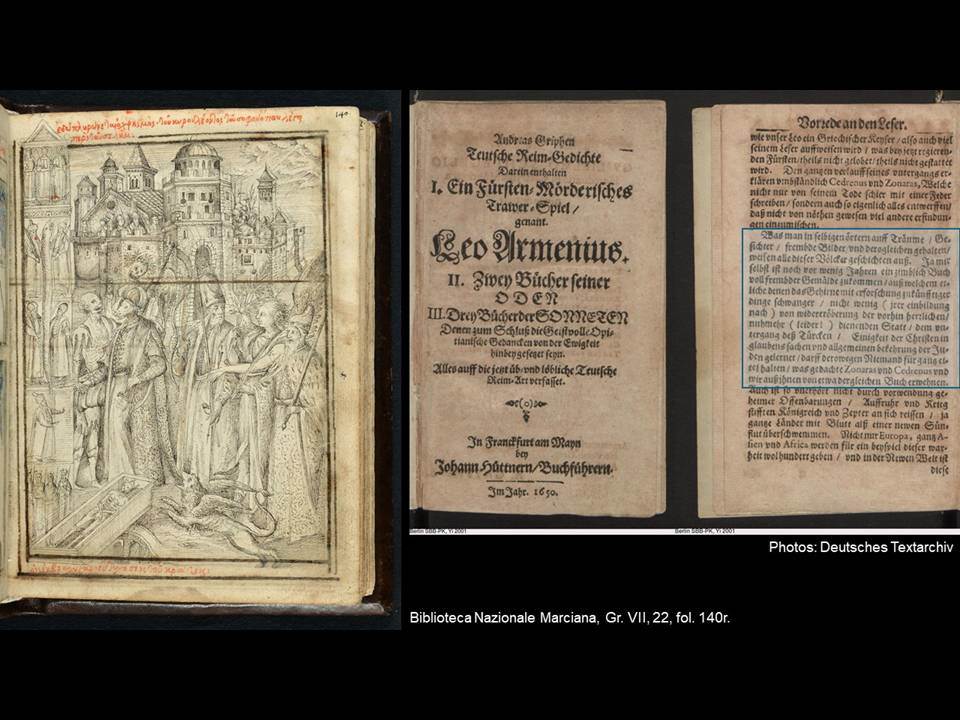 140.
Andreas Griphen
Teutsche Reim-Gedichte
Darein enthalten
I. Ein Fürsten-Mörderisches
Trawer-Spiel /
genant.
Leo Armenius.
II. Zwey Bücher seiner
ODEN
III. Drey Bücher der SONNETEN
Denen zum Schluß die Geistvolle Opi-
tianische Gedancken von der Ewigkeit
hinbey gesetzet seyn.
Alles auff die jetzt üb- und löbliche Teutsche
Reim-Art verfasset.
(o)
In Franckfurt am Mayn
bey
Johann Hüttnern / Buchführern.
Im Jahr. 1650.
Berlin SBB-PK, Yi 2001
Vorrede an den Leser.
wie unser Leo ein Griechischer Keyser / also auch viel
seinem Leser auffweisen wird / was bey jetzt regieren-
den Fürsten / theils nicht gelobet / theils nicht gestattet
wird. Den gantzen verlauff seines untergangs er-
klären umbständlich Cedrenus vnd Zonaras, Welche
nicht nur von seinem Tode schier mit einer Feder
schreiben / sondern auch so eigentlich alles entwerffen /
daß nicht von nöthen gewesen viel andere erfindun-
gen einzumischen.
Was man in selbigen örtern auff Träume / Ge-
sichter / frembde Bilder / vnd dergleichen gehalten /
weisen alle dieser Völcker geschichten auß. Ja mir
selbst ist noch vor wenig Jahren ein zimblich Buch
voll frembder Gemälde zukommen / auß welchem et-
liche denen das Gehirne mit erforschung zukünfftiger
dinge schwanger / nicht wenig ( jrer einbildung
nach ) von widereröberung der vorhin herrlichen /
nunmehr ( leider! ) dienenden Statt / dem un-
tergang deß Türcken / Einigkeit der Christen in
glaubens sachen vnd allgemeinen bekehrung der Ju-
den gelernet / darff derowegen Niemand für gang ei-
tel halten / was gedachte Zonaras vnd Cedrenus vnd
wir auß jhnen von etwa dergleichen Buch erwehnen.
Auch ist so unerhört nicht durch vorwendung ge-
heimer Offenbarungen / Auffruhr vnd Krieg
stifften Königreich vnd Zepter an sich reissen / ja
gantze Länder mit Blute alß einer newen Sün-
flut überschwemmen. Nicht nur Europa, gantz A-
sien vnd Africa werden für ein beyspiel dieser war-
heit wol hundert geben / vnd in der Newen Welt ist
diese
Berlin SBB-PK, Yi 2001
Photos: Deutsches Textarchiv
Biblioteca Nazionale Marciana, Gr. VII, 22, fol. 140r.